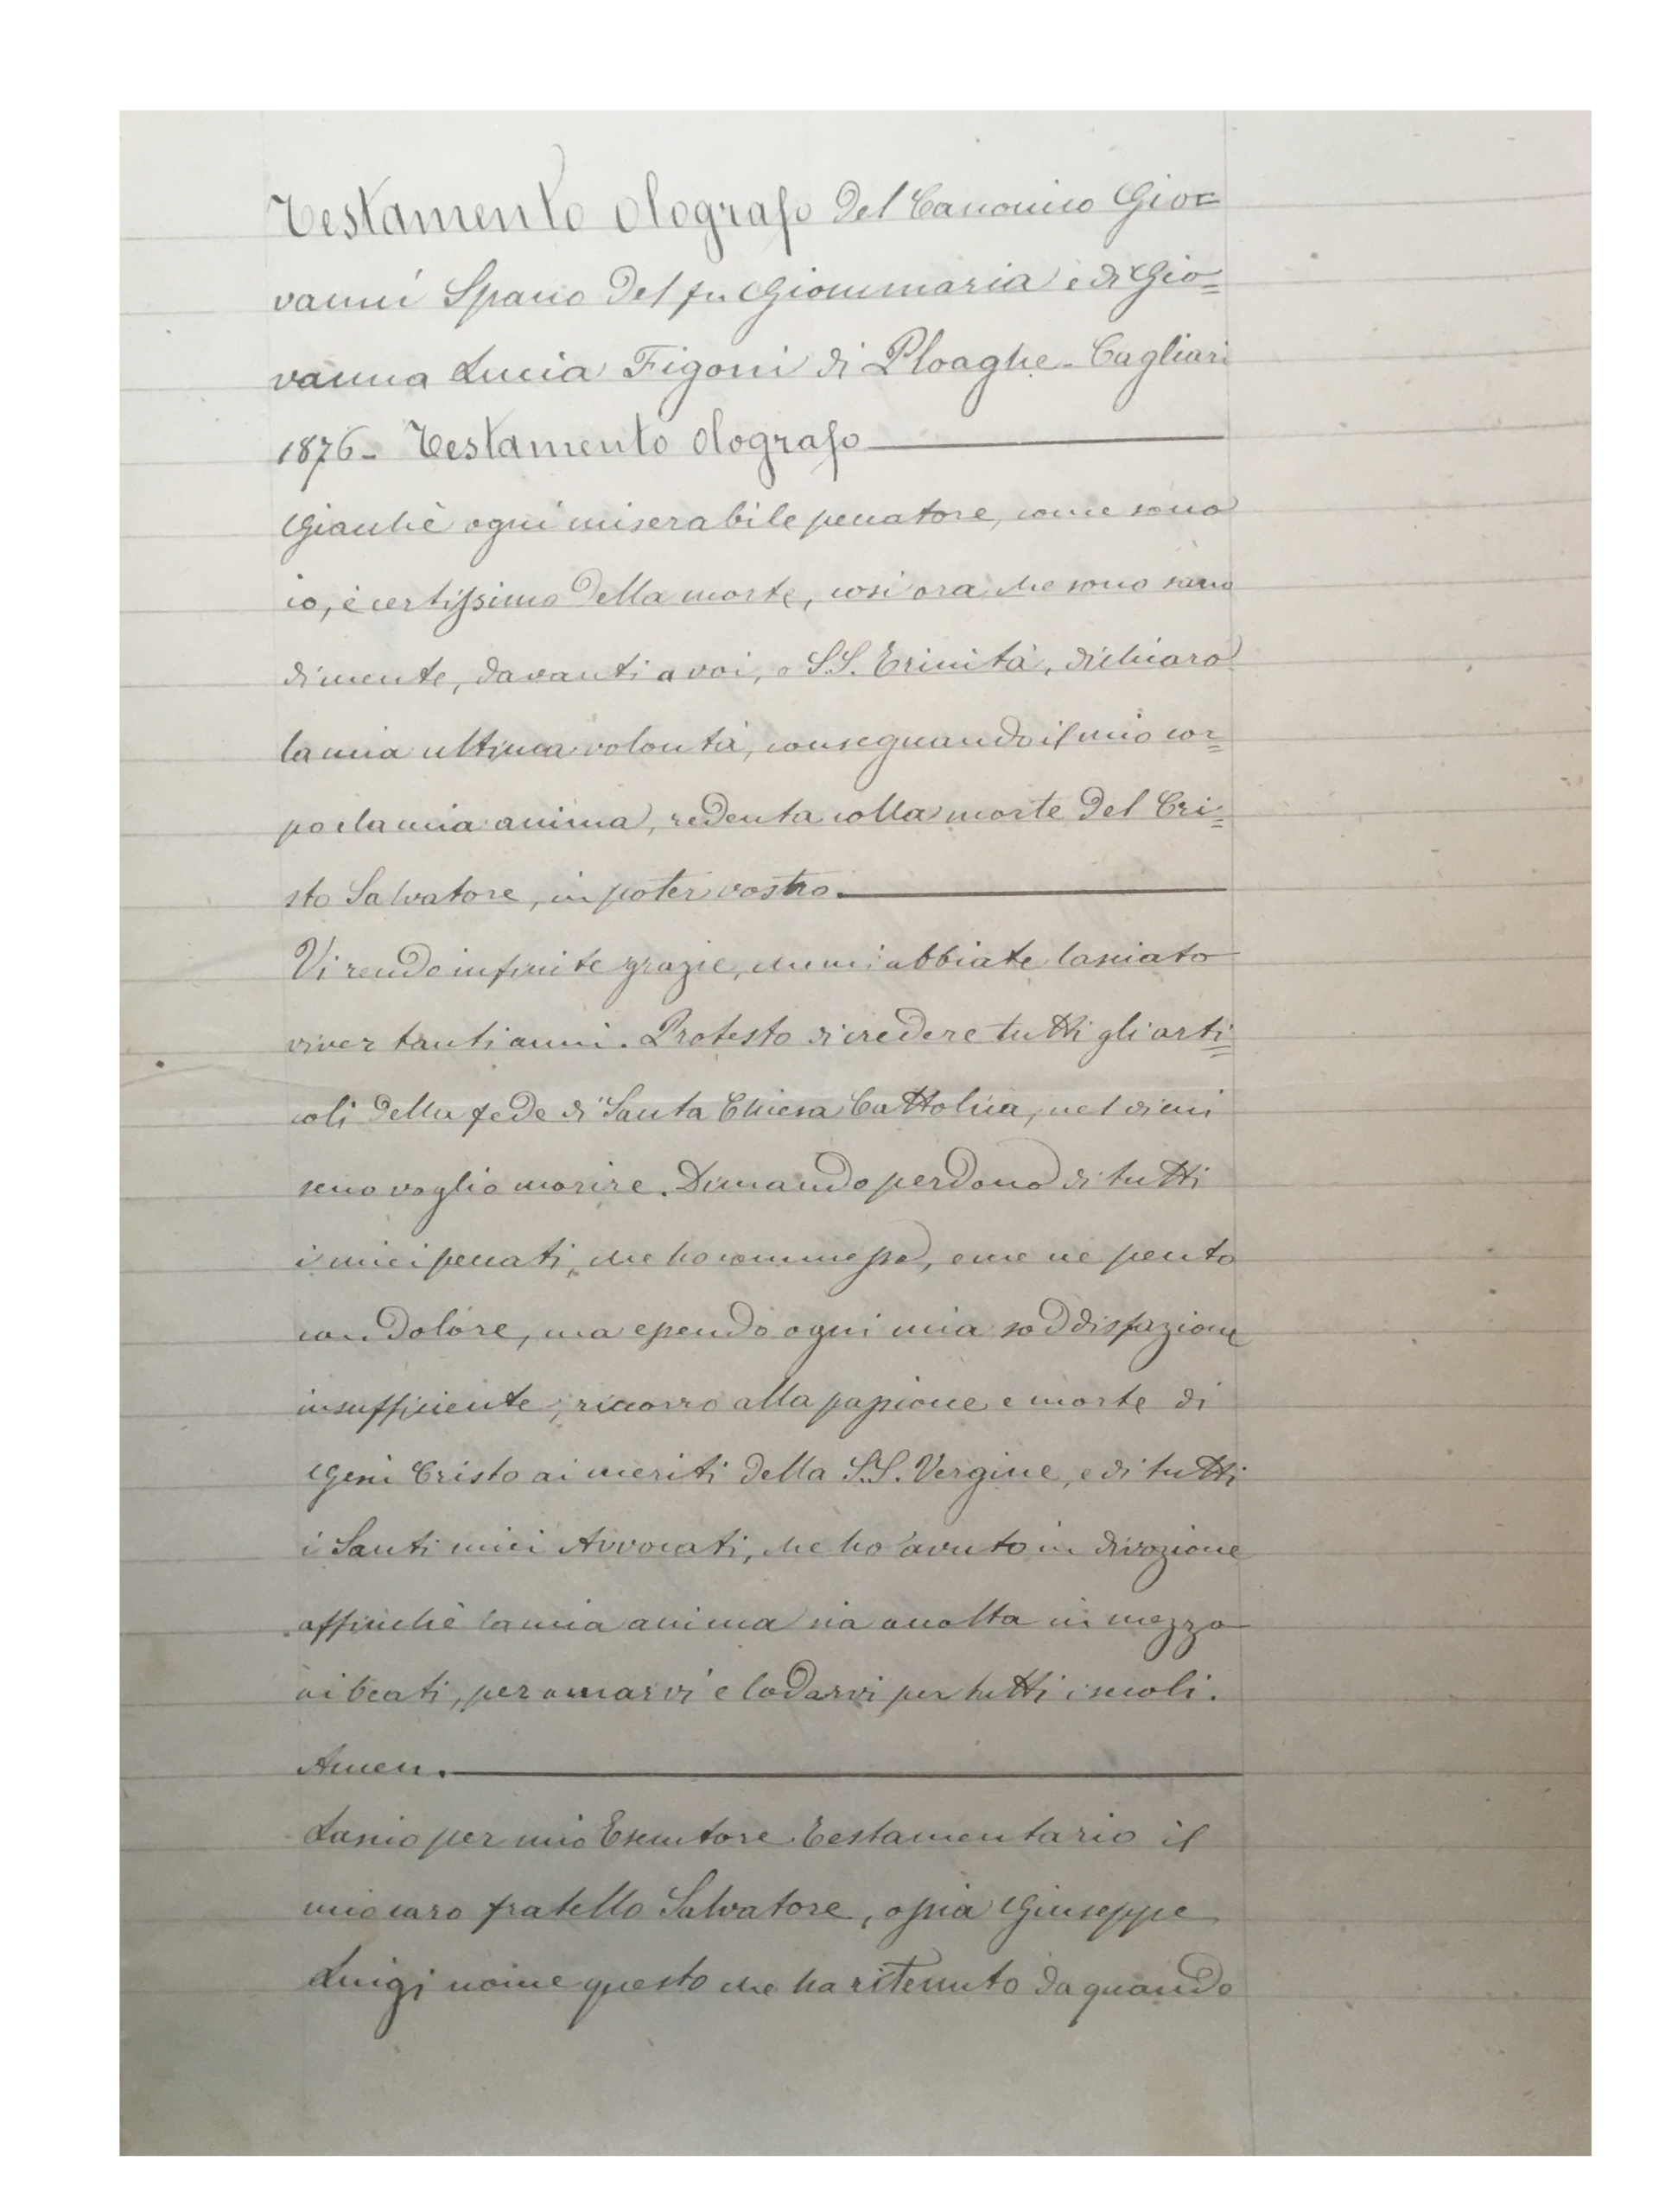 Testamento Olografo Del Canonico Gio=
vanni Spano Del fu Giommaria e di Gio=
vanna Lucia Figoni di Ploaghe - Cagliari
1876 - Testamento Olografo
Giacchè ogni miserabile peccatore, come sono
io, è certissimo Della morte, così ora che sono sano
di mente, davanti a voi, o S.S. Trinità, dichiaro
la mia ultima volontà, consegnando il mio cor=
po e la mia anima, redenta colla morte Del Cri=
sto Salvatore, in poter vostro.
Vi rendo infinite grazie, che mi abbiate lasciato
viver tanti anni. Protesto di credere tutti gli arti=
coli Della fede di Santa Chiesa Cattolica, nel di cui
seno voglio morire. Dimando perdono di tutti
i miei peccati, che ho commesso, e me ne pento
con Dolore, ma essendo ogni mia soddisfazione
insufficiente, ricorro alla passione e morte di
Gesù Cristo ai meriti Della S.S. Vergine, e di tutti
i Santi miei Avvocati, che ho avuto in divozione
affinchè la mia anima sia accolta in mezzo
ai beati, per amarvi e lodarvi per tutti i secoli.
Amen.
Lascio per mio Esecutore Testamentario il
mio caro fratello Salvatore, ossia Giuseppe
Luigi nome questo che ha ritenuto da quando